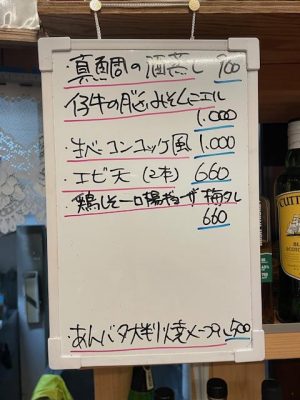 ・真鯛の酒蒸し 900
仔牛の脳みそムニエル
1.000
・生ベーコンユッケ風 1.000
・エビ天(2本) 660
・鶏しそ一口揚ギョーザ 梅タレ
660
・あんバタ大判焼メープル 500
CUTT